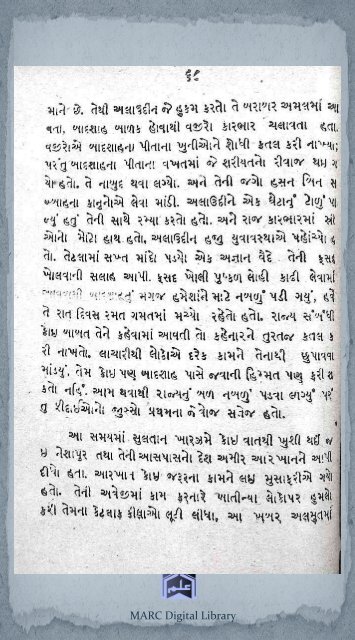 ૬૯
માને છે. તેથી અલાઉદ્દીન જે હુકમ કરતો તે બરાબર અમલમાં આ
વતા, બાદશાહ બાળક હોવાથી વજીરો કારભાર ચલાવતા હતા.
વજીરોએ બાદશાહના પીતાના ખુનીઓને શોધી કતલ કરી નાખ્યા;
પરંતુ બાદશાહના પીતાના વખતમાં જે શરીયતનો રીવાજ થઇ ગ
યો હતો, તે નાબુદ થવા લાગ્યો. અને તેની જગો હસન બિન સ
બ્બાહના કાનુનોએ લેવા માંડી. અલાઉદીને એક ઘેટાનું ટોળું પા
ળ્યું હતું તેની સાથે રમ્યા કરતો હતો. અને રાજ કારભારમાં સ્ત્રી
ઓનો મોટો હાથ હતો, અલાઉદીન હજી યુવાવસ્થાએ પહોંચ્યો હ
તો. તેટલામાં સખ્ત માંદો પડ્યો એક અજ્ઞાન વૈદે તેની ફસદ
ખોલવાની સલાહ આપી. ફસદ ખોલી પુષ્કળ લોહી કાઢી લેવામાં
આવવાથી બાદશાહનું મગજ હમેશાંને માટે નબળું પડી ગયું, હવે
તે રાત દિવસ રમત ગમતમાં મચ્યો રહેતો હતો. રાજ્ય સંબંધી
કોઇ બાબત તેને કહેવામાં આવતી તો કહેનારને તુરતજ કતલ ક
રી નાખતો. લાચારીથી લોકોએ દરેક કામને તેનાથી છુપાવવા
માંડયું. તેમ કોઇ પણ બાદશાહ પાસે જવાની હિમ્મત પણ કરી શ
કતો નહિં. આમ થવાથી રાજ્યનું બળ નબળું પડવા લાગ્યું પરં
તુ ફીદાઇઓનો જુસ્સો પ્રથમના જેવોજ સતેજ હતો.
આ સમયમાં સુલતાન ખારઝમે કોઇ વાતથી ખુશી થઈ જ
ઇ નેશાપુર તથા તેની આસપાસનો દેશ અમીર આરખાનને આપી
દીધો હતો. આરખાન કોઇ જરૂરના કામને લઇ મુસાફરીએ ગયો
હતો. તેની અવેજીમાં કામ કરનારે બાતીન્યા લોકોપર હુમલો
કરી તેમના કેટલાક કીલ્લાઓ લૂટી લીધા, આ ખબર અલમુતમાં
MARC Digital Library